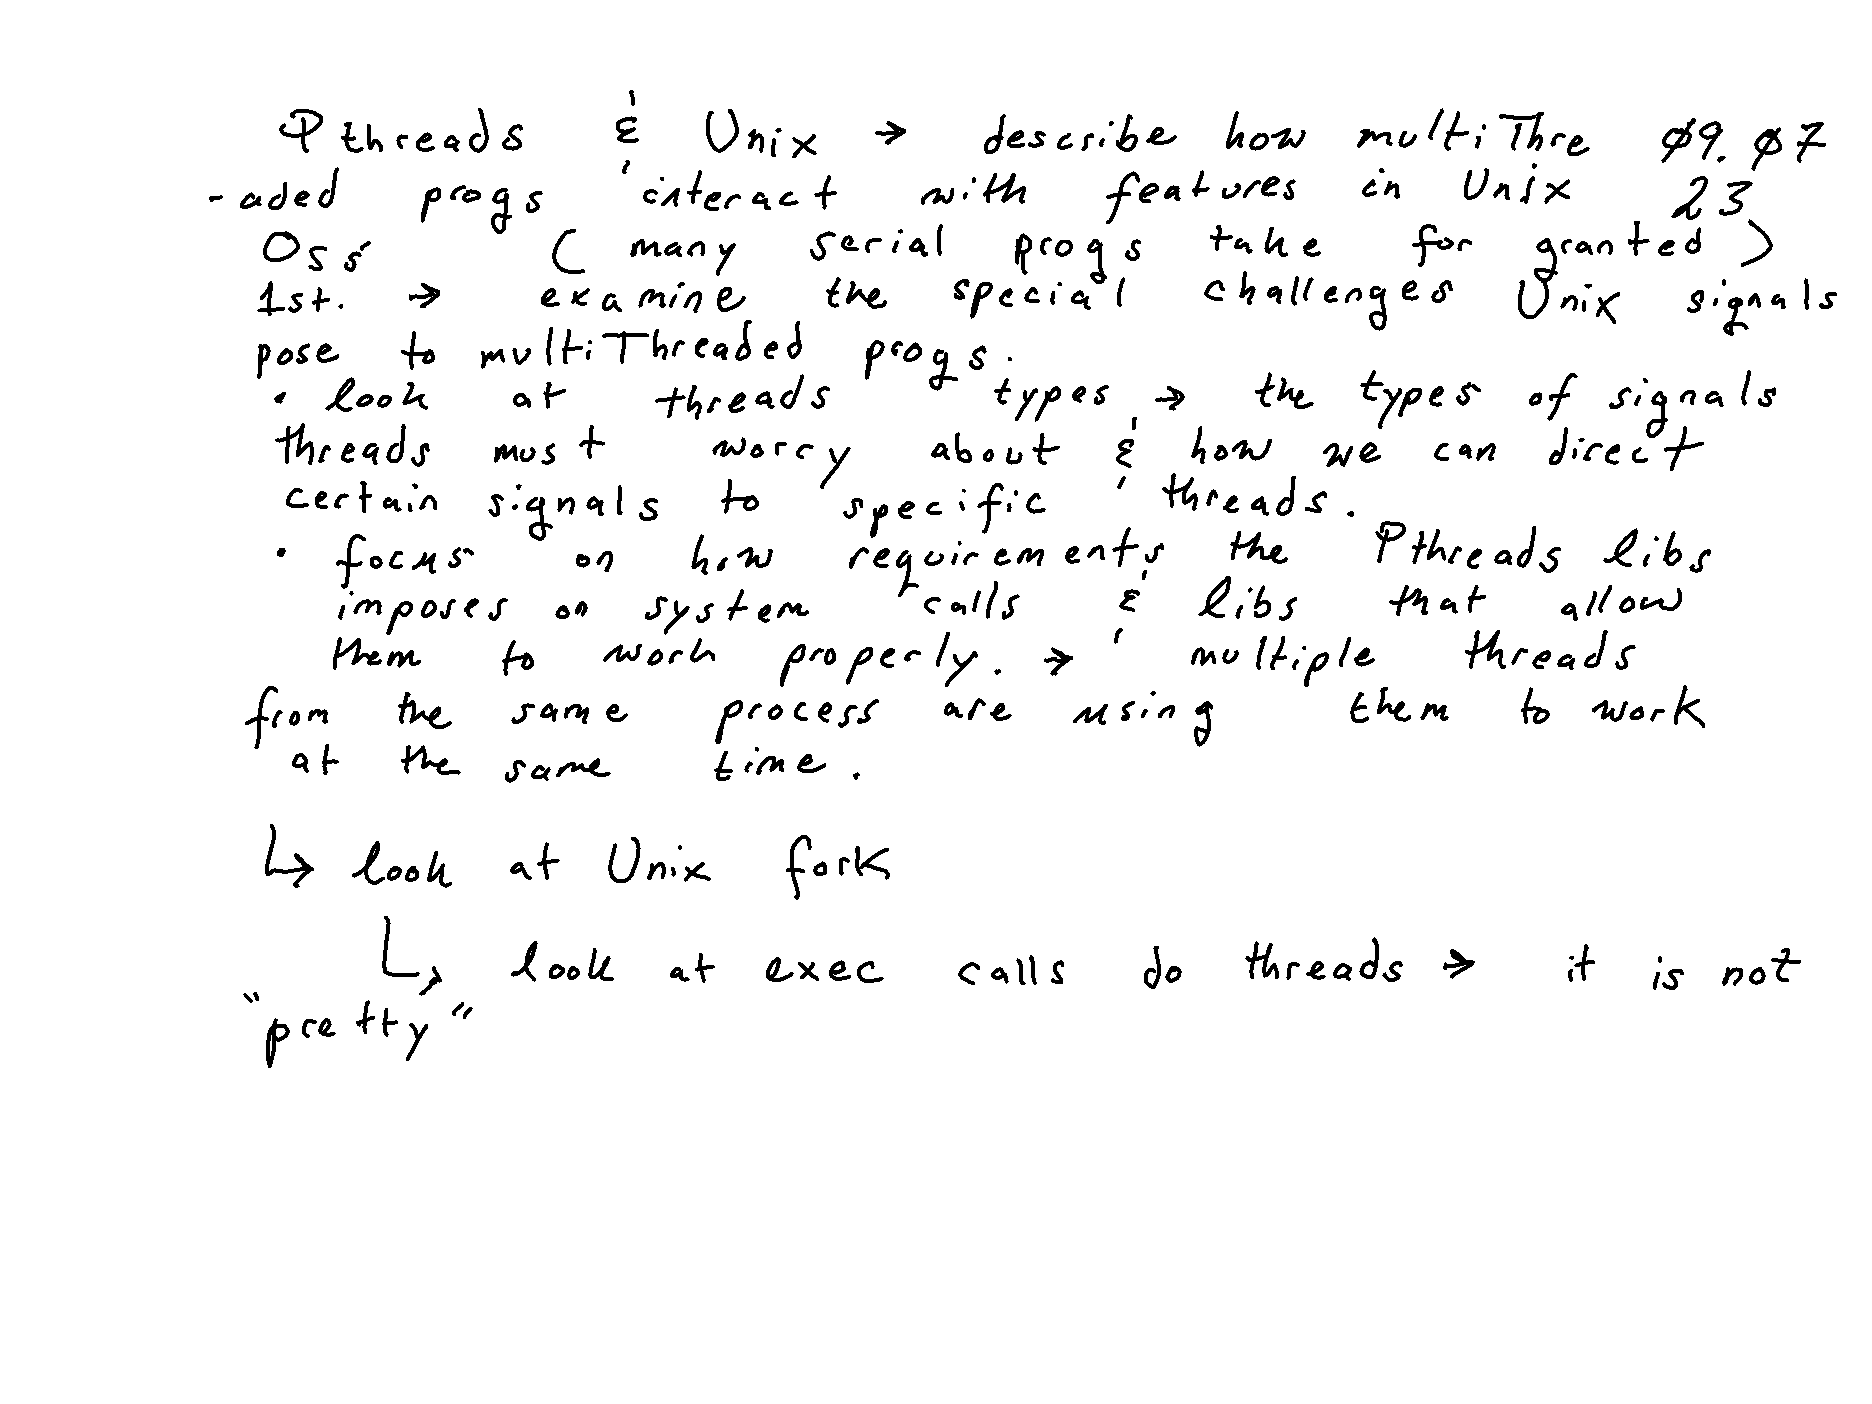 Pthreads & Unix → describe how multiThre 09.07
-aded progs interact with features in Unix 23
OSs (many serial progs take for granted)
1st. → examine the special challenges Unix signals
pose to multiThreaded progs.
• look at threads types → the types of signals
threads must worry about & how we can direct
certain signals to specific threads.
• focus on how requirements the Pthreads libs
imposes on system calls & libs that allow
them to work properly. → multiple threads
from the same process are using them to work
at the same time.
↳ look at Unix fork
↳ look at exec calls do threads → it is not
"pretty"